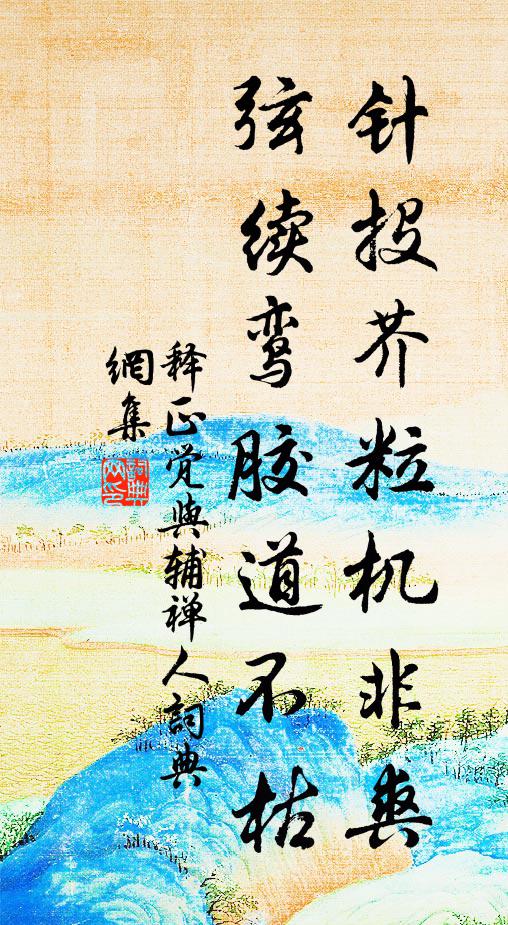 针投芥粒机非爽
弦续鸾胶道不枯
释正觉与辅禅人詞典
網集
詞典